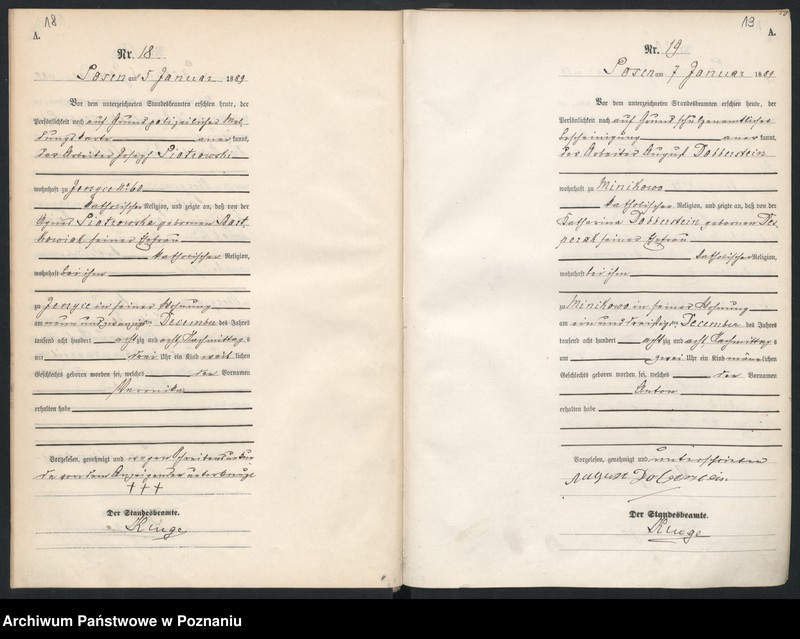 18
A.
Nr. 18
Posen am 5 Januar 1889
Vor dem unterzeichneten Standesbeamten erschien heute, der
Persönlichkeit nach auf Grund polizeilicher Mel-
dungskarte anerkannt,
der Arbeiter Joseph Piotrowski
wohnhaft zu Jerzyce No 60
katholischer Religion, und zeigte an, daß von der
Agnes Piotrowska geborenen Bart
kowiak seiner Ehefrau
katholischer Religion,
wohnhaft bei ihm
zu Jerzyce in seiner Wohnung
am neun und zwanzigsten December des Jahres
tausend acht hundert achtzig und acht Nachmittags
um drei Uhr ein Kind weiblichen
Geschlechts geboren worden sei, welches den Vornamen
Veronika
erhalten habe
Vorgelesen, genehmigt und wegen Schreibensunkun
de von dem Anzeigenden unterkreuzt
+++
Der Standesbeamte.
Kruge
19
A.
Nr. 19
Posen am 7 Januar 1889
Vor dem unterzeichneten Standesbeamten erschien heute, der
Persönlichkeit nach auf Grund schulzenamtlicher
Bescheinigung anerkannt,
der Arbeiter August Dobberstein
wohnhaft zu Minikowo
katholischer Religion, und zeigte an, daß von der
Katharina Dobberstein geborenen
seiner Ehefrau
katholischer Religion,
wohnhaft bei ihm
zu Minikowo in seiner Wohnung
am ein und dreißigsten December des Jahres
tausend acht hundert achtzig und acht Nachmittags
um zwei Uhr ein Kind männlichen
Geschlechts geboren worden sei, welches den Vornamen
Anton
erhalten habe
Vorgelesen, genehmigt und unterschrieben
August
Der Standesbeamte.
Kruge
Archiwum Państwowe w Poznaniu